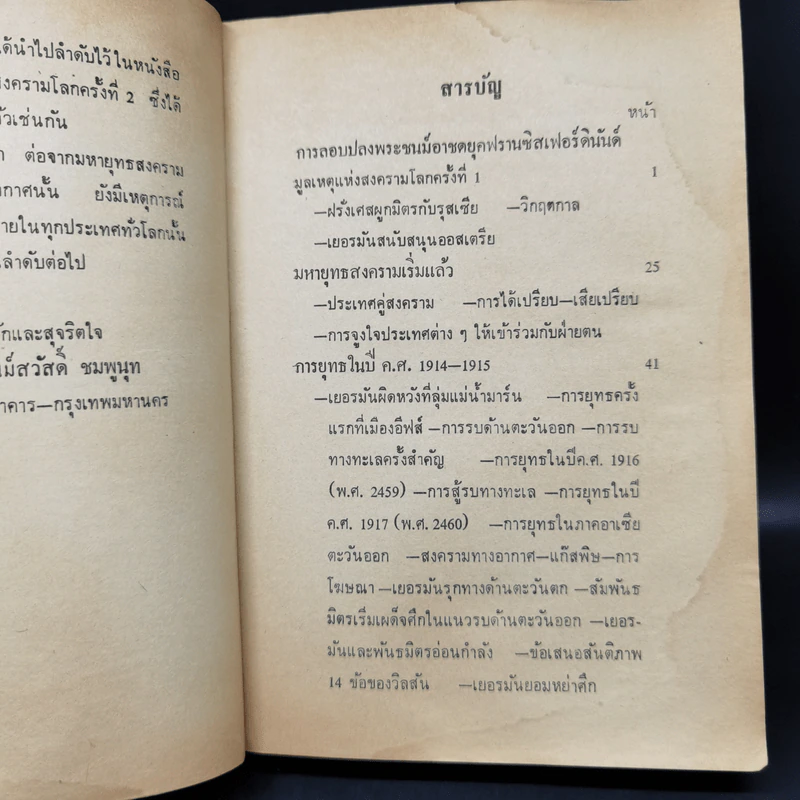 ได้นำไปลำดับไว้ในหนังสือ
สงครามโลกครั้งที่ 2 ซึ่งได้
ตัวเช่นกัน
ต่อจากมหายุทธสงคราม
กาศนั้น ยังมีเหตุการณ์
ายในทุกประเทศทั่วโลกนั้น
นลำดับต่อไป
รักและสุจริตใจ
ม์สวัสดิ์ ชมพูนุท
าคาร—กรุงเทพมหานคร
สารบัญ
หน้า
การลอบปลงพระชนม์อาชดยุคฟรานซิสเฟอร์ดินันด์
มูลเหตุแห่งสงครามโลกครั้งที่ 1 1
—ฝรั่งเศสผูกมิตรกับรุสเซีย —วิกฤตกาล
—เยอรมันสนับสนุนออสเตรีย
มหายุทธสงครามเริ่มแล้ว 25
—ประเทศคู่สงคราม —การได้เปรียบ—เสียเปรียบ
—การจูงใจประเทศต่าง ๆ ให้เข้าร่วมกับฝ่ายตน
การยุทธในปี ค.ศ. 1914—1915 41
—เยอรมันผิดหวังที่ลุ่มแม่น้ำมาร์น —การยุทธครั้ง
แรกที่เมืองอีฟส์ —การรบด้านตะวันออก —การรบ
ทางทะเลครั้งสำคัญ —การยุทธในปีค.ศ. 1916
(พ.ศ. 2459) —การสู้รบทางทะเล —การยุทธในปี
ค.ศ. 1917 (พ.ศ. 2460) —การยุทธในภาคอาเซีย
ตะวันออก —สงครามทางอากาศ—แก๊สพิษ—การ
โฆษณา —เยอรมันรุกทางด้านตะวันตก —สัมพันธ
มิตรเริ่มเผด็จศึกในแนวรบด้านตะวันออก —เยอร-
มันและพันธมิตรอ่อนกำลัง —ข้อเสนอสันติภาพ
14 ข้อของวิลสัน —เยอรมันยอมหย่าศึก